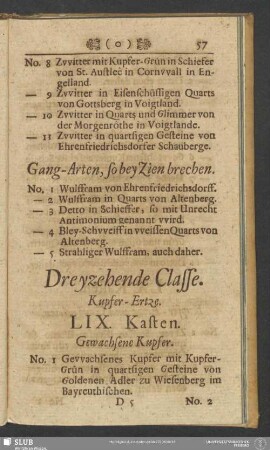 ( o ) 57
No. 8 Zvvitter mit Kupfer-Grün in Schiefer
von St. Austleć in Cornvvall in En-
gelland.
— 9 Zvvitter in Eisenschüssigen Quarts
von Gottsberg in Voigtland.
— 10 Zvvitter in Quarts und Glimmer von
der Morgenröthe in Voigtlande.
— 11 Zvvitter in quartsigen Gesteine von
Ehrenfriedrichsdorfer Schauberge.
Gang-Arten, so bey Zien brechen.
No. 1 Wulffram von Ehrenfriedrichsdorff.
— 2 Wulffram in Quarts von Altenberg.
— 3 Detto in Schieffer, so mit Unrecht
Antimonium genannt vvird.
— 4 Bley-Schvveiff in vveissen Quarts von
Altenberg.
— 5 Strahliger Wulffram, auch daher.
Dreyzehende Classe.
Kupfer-Ertze.
LIX. Kasten.
Gewachsene Kupfer.
No. 1 Gevvachsenes Kupfer mit Kupfer-
Grün in quartsigen Gesteine von
Goldenen Adler zu Wiesenberg im
Bayreuthischen.
D 5 No. 2
SLUB